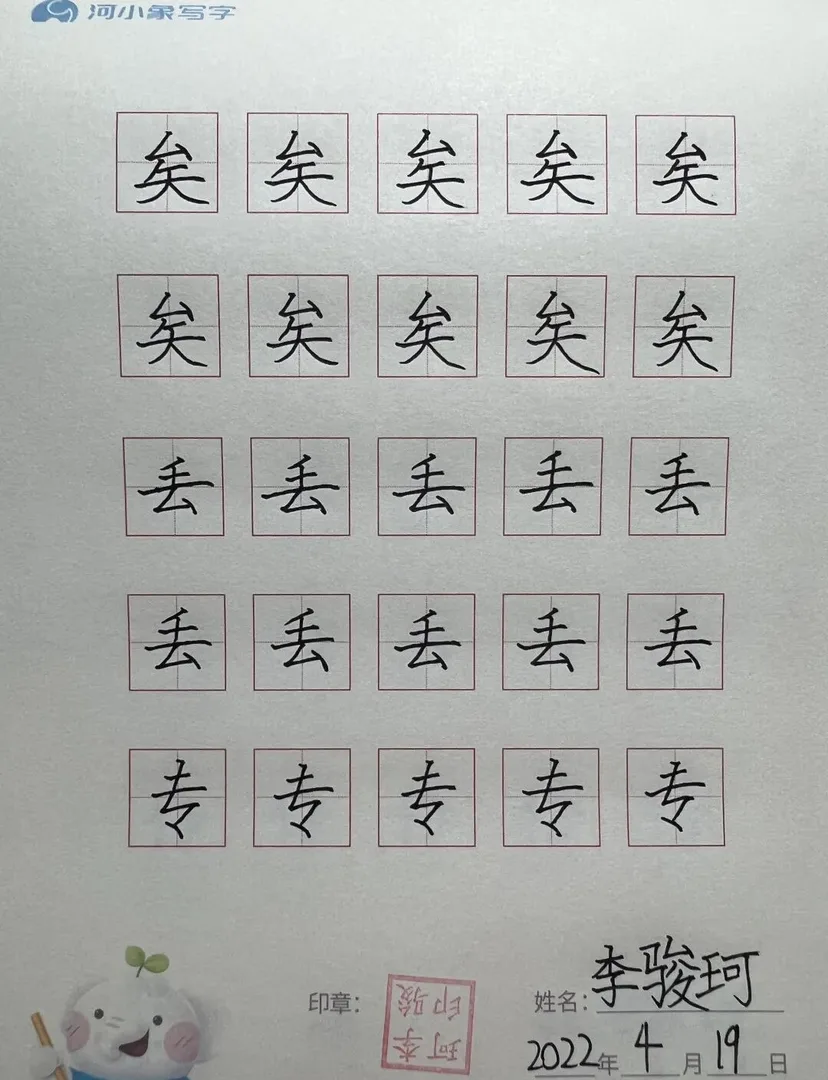 河小象写字
矣 矣 矣 矣 矣
矣 矣 矣 矣 矣
丢 丢 丢 丢 丢
丢 丢 丢 丢 丢
专 专 专 专 专
印章: 李骏珂印 姓名: 李骏珂
2022年4月19日